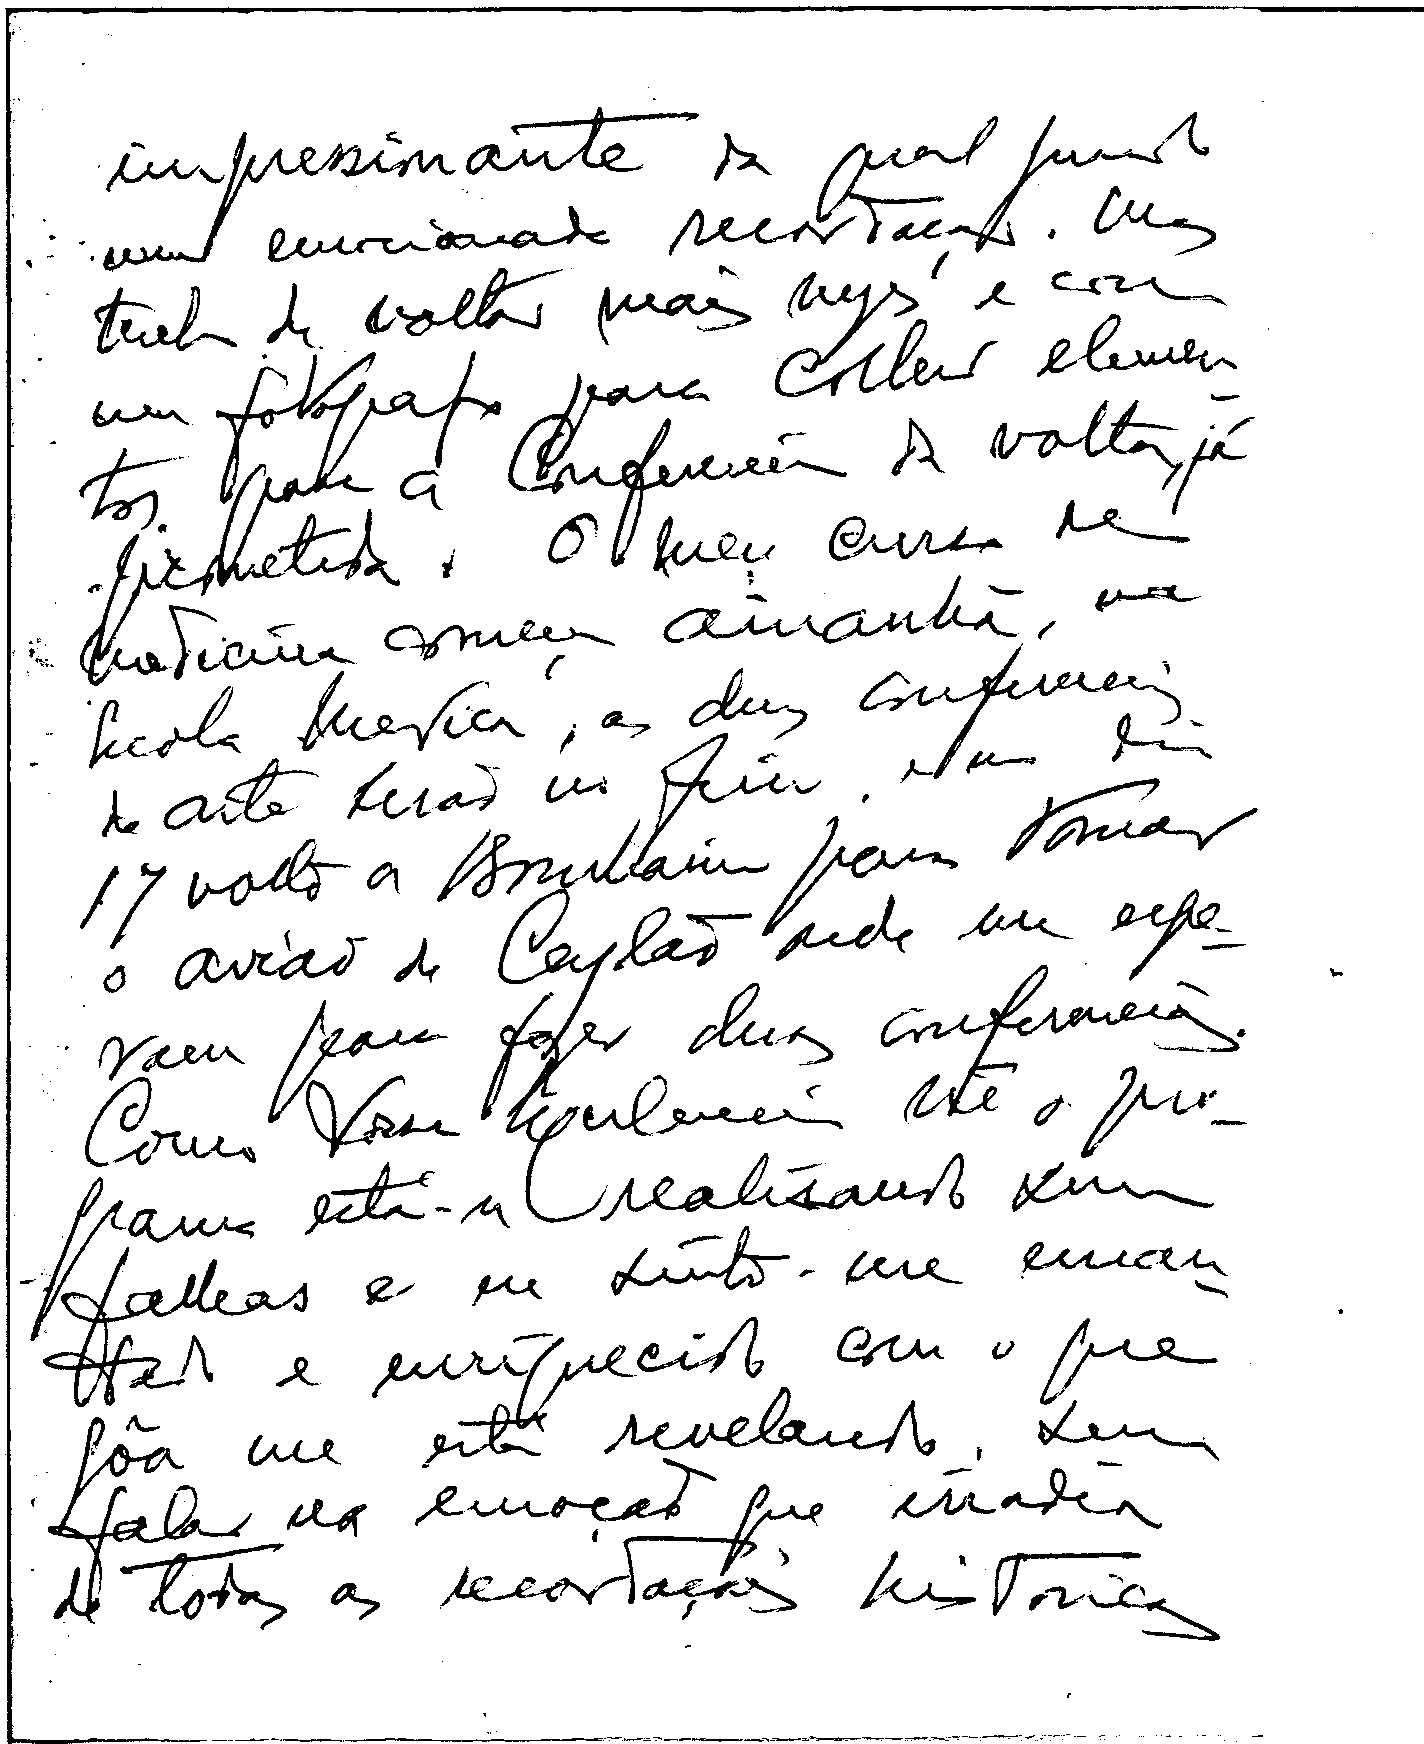 impressionante da qual guardo
uma emocionada recordação. Mas
tenho de voltar mais vezes e com
um fotografo para colher elemen-
tos para a Conferencia da volta, já
prometida. O meu curso de
medicina começa amanhã, na
Escola Medica, as duas conferencias
de arte serão no fim, e no dia
17 volto a Bombaim para tomar
o avião de Ceylão onde me espe-
ram para fazer duas conferencias.
Como Vossa Excelencia vê o pro-
grama está-se realisando sem
falhas e eu sinto-me encan-
tado e enriquecido com o que
Gôa me está revelando, sem
falar na emoção que irradia
de todas as recordações historicas